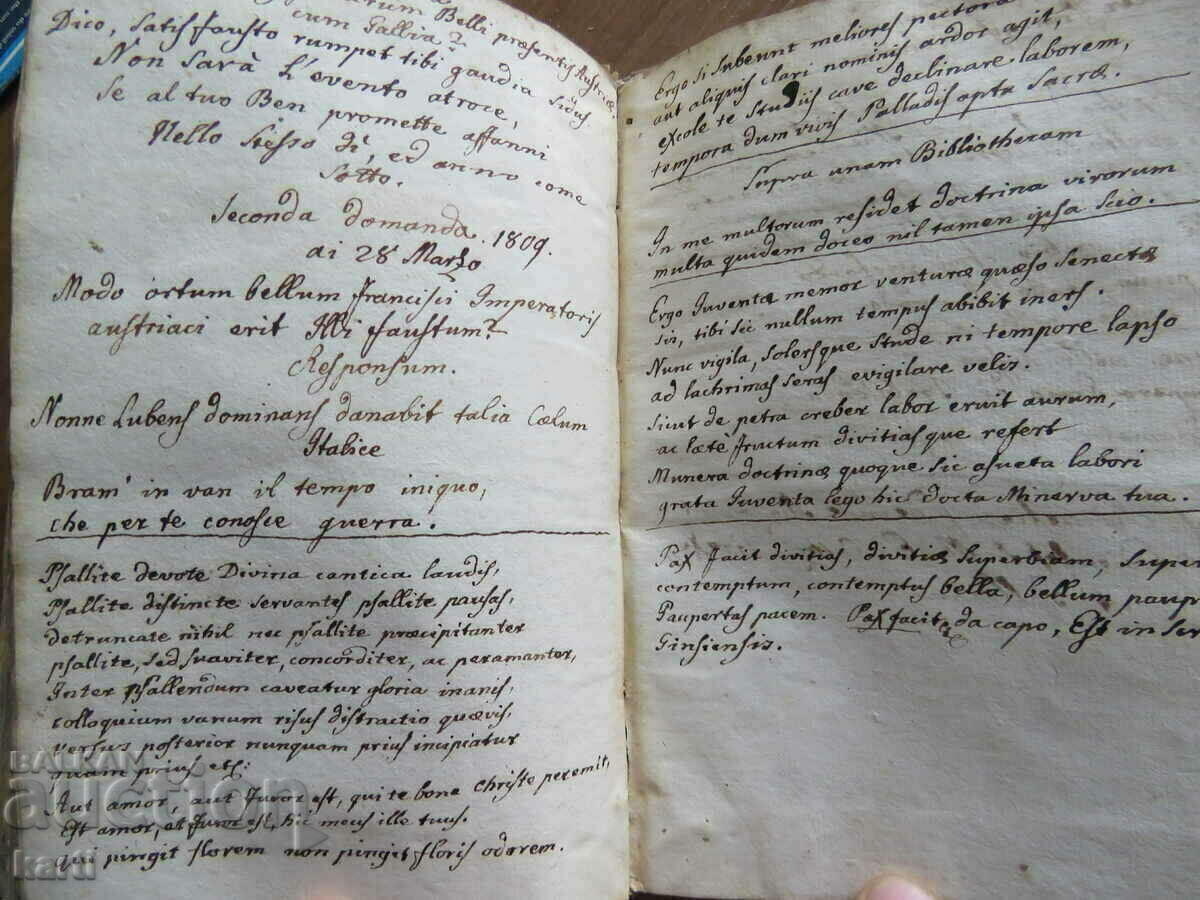 Belli præsentis Austriæ
cum Gallia?
Dico, satis fausto rumpet tibi gaudia sidus
Non sarà l'evento atroce,
Se al tuo Ben promette affanni
Nello stesso dì, ed anno come
Sotto.
Seconda domanda. 1809.
ai 28 Marzo
Modo ortum bellum Francisci Imperatoris
austriaci erit Illi faustum?
Responsum.
Nonne Lubens dominans danabit talia Cælum
Italice
Bram' in van il tempo iniquo,
che per te conosce guerra.
Psallite devote Divina cantica laudis,
Psallite distincte servantes psallite pausas,
detruncate nihil nec psallite præcipitanter
psallite, sed suaviter, concorditer, ac peramanter,
Inter psallendum caveatur gloria inanis,
colloquium vanum risus distractio quævis,
versus posterior nunquam prius incipiatur
quam prius etc:
Aut amor, aut furor est, qui te bone Christe peremit,
Est amor, et furor est, hic meus ille tuus.
qui pingit florem non pingit floris odorem.
Ergo si subeunt meliores pectora
aut aliquis clari nominis ardor agit,
excole te studiis cave declinare laborem,
tempora dum vivis Palladis apta Sacræ.
Supra unam Bibliothecam
In me multorum residet doctrina virorum
multa quidem doceo nil tamen ipsa scio.
Ergo Iuventæ memor venturæ quæso senectæ
sis, tibi sic nullum tempus abibit iners.
Nunc vigila, solersque stude ni tempore lapso
ad lachrimas seras evigilare velis.
sicut de petra creber labor eruit aurum,
ac lætè fructum divitiasque refert
Munera doctrinæ quoque sic asueta labori
grata Iuventa lego hic docta Minerva tua.
Pax facit divitias, divitiæ superbiam, super
contemptum, contemptus bella, bellum paup
Paupertas pacem. Pax facit da capo, Est in
Ginsiensis.
BALKAN
auction
karti